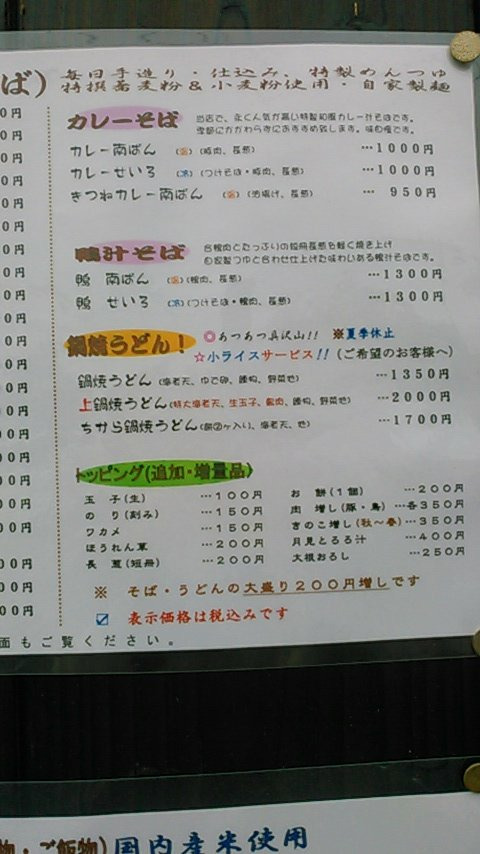 ば) 毎日手造り・仕込み、特製めんつゆ
特撰蕎麦粉&小麦粉使用・自家製麺
カレーそば
当店で、永くん気が高い特製和風カレー汁そばです。
季節にかかわらずにおすすめ致します。味自慢です。
カレー南ばん (温)(豚肉、長葱) …1000円
カレーせいろ (冷)(つけそば・豚肉、長葱) …1000円
きつねカレー南ばん (温)(油揚げ、長葱) … 950円
鴨汁そば
合鴨肉とたっぷりの短冊長葱を軽く焼き上げ
自家製つゆと合わせ仕上げた味わいある鴨汁そばです。
鴨 南ばん (温)(鴨肉、長葱) …1300円
鴨 せいろ (冷)(つけそば・鴨肉、長葱) …1300円
鍋焼うどん! ◎あつあつ具沢山!! ※夏季休止
☆小ライスサービス!! (ご希望のお客様へ)
鍋焼うどん (海老天、ゆで卵、鶏肉、野菜他) …1350円
上鍋焼うどん (特大海老天、生玉子、鴨肉、鶏肉、野菜他) …2000円
ちから鍋焼うどん (餅②ヶ入り、海老天、他) …1700円
トッピング(追加・増量品)
玉 子(生) …100円
のり(刻み) …150円
ワカメ …150円
ほうれん草 …200円
長 葱(短冊) …200円
お 餅(1個) …200円
肉 増し(豚・鳥) …各350円
きのこ増し(秋〜春) …350円
月見とろろ汁 …400円
大根おろし …250円
※ そば・うどんの大盛り200円増しです
☑ 表示価格は税込みです
面もご覧ください。
物・ご飯物) 国内産米使用